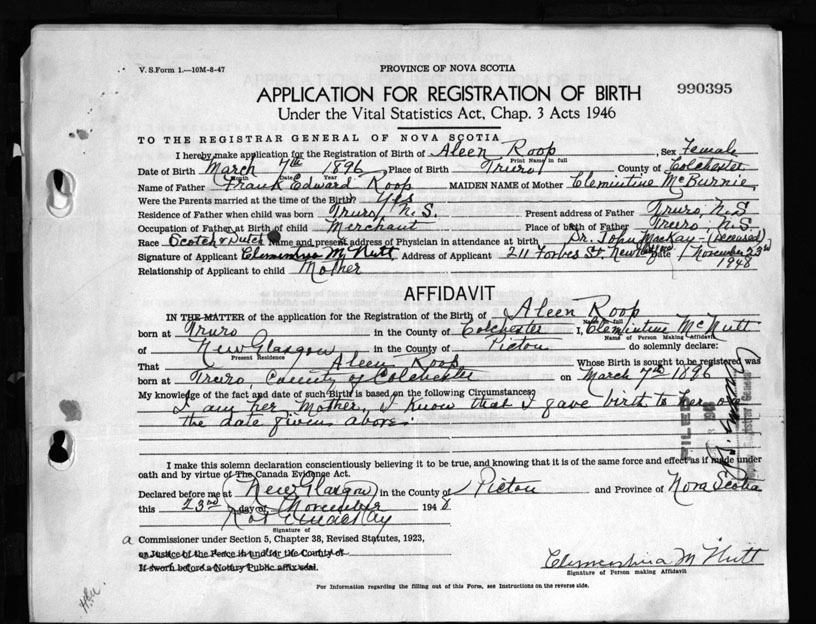 V. S. Form 1.—10M-8-47
PROVINCE OF NOVA SCOTIA
990395
APPLICATION FOR REGISTRATION OF BIRTH
Under the Vital Statistics Act, Chap. 3 Acts 1946
TO THE REGISTRAR GENERAL OF NOVA SCOTIA
I hereby make application for the Registration of Birth of Aleen Roop, Sex Female
Print Name in full
Date of Birth March 7th 1896, Place of Birth Truro County of Colchester
Month Date Year
Name of Father Frank Edward Roop MAIDEN NAME of Mother Clemintine McBurnie
Were the Parents married at the time of the Birth Yes
Residence of Father when child was born Truro, N.S. Present address of Father Truro, N.S.
Occupation of Father at Birth of child Merchant Place of birth of Father Truro, N.S.
Race Scotch & Dutch Name and present address of Physician in attendance at birth Dr. John MacKay - (Deceased)
Signature of Applicant McNutt Address of Applicant 211 Forbes St. New Date November 23rd
1948
Relationship of Applicant to child Mother
AFFIDAVIT
IN THE MATTER of the application for the Registration of the Birth of Aleen Roop
Name in full
born at Truro in the County of Colchester I, Clemintine McNutt
Name of Person Making Affidavit
of New Glasgow in the County of Pictou do solemnly declare:
Present Residence
That Aleen Roop Whose Birth is sought to be registered was
born at Truro, County of Colchester on March 7th 1896
My knowledge of the fact and date of such Birth is based on the following Circumstances:
I am her Mother, I know that I gave birth to her on
the date given above.
FILED
I make this solemn declaration conscientiously believing it to be true, and knowing that it is of the same force and effect as if made under
oath and by virtue of The Canada Evidence Act.
Declared before me at New Glasgow in the County of Pictou and Province of Nova Scotia
this 23rd day of November 1948
Signature of
a Commissioner under Section 5, Chapter 38, Revised Statutes, 1923,
or Justice of the Peace in and for the County of
If sworn before a Notary Public affix seal.
McNutt
Signature of Person making Affidavit
For Information regarding the filling out of this Form, see Instructions on the reverse side.